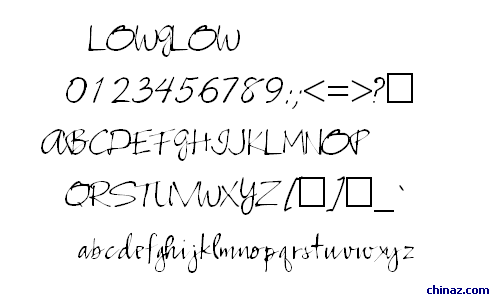 LOWGLOW
0123456789:;<=>?□
ABCDEFGHIJKLMNOP
QRSTUVWXYZ[□]□_`
abcdefghijklmnopqrstuvwxyz
chinaz.com